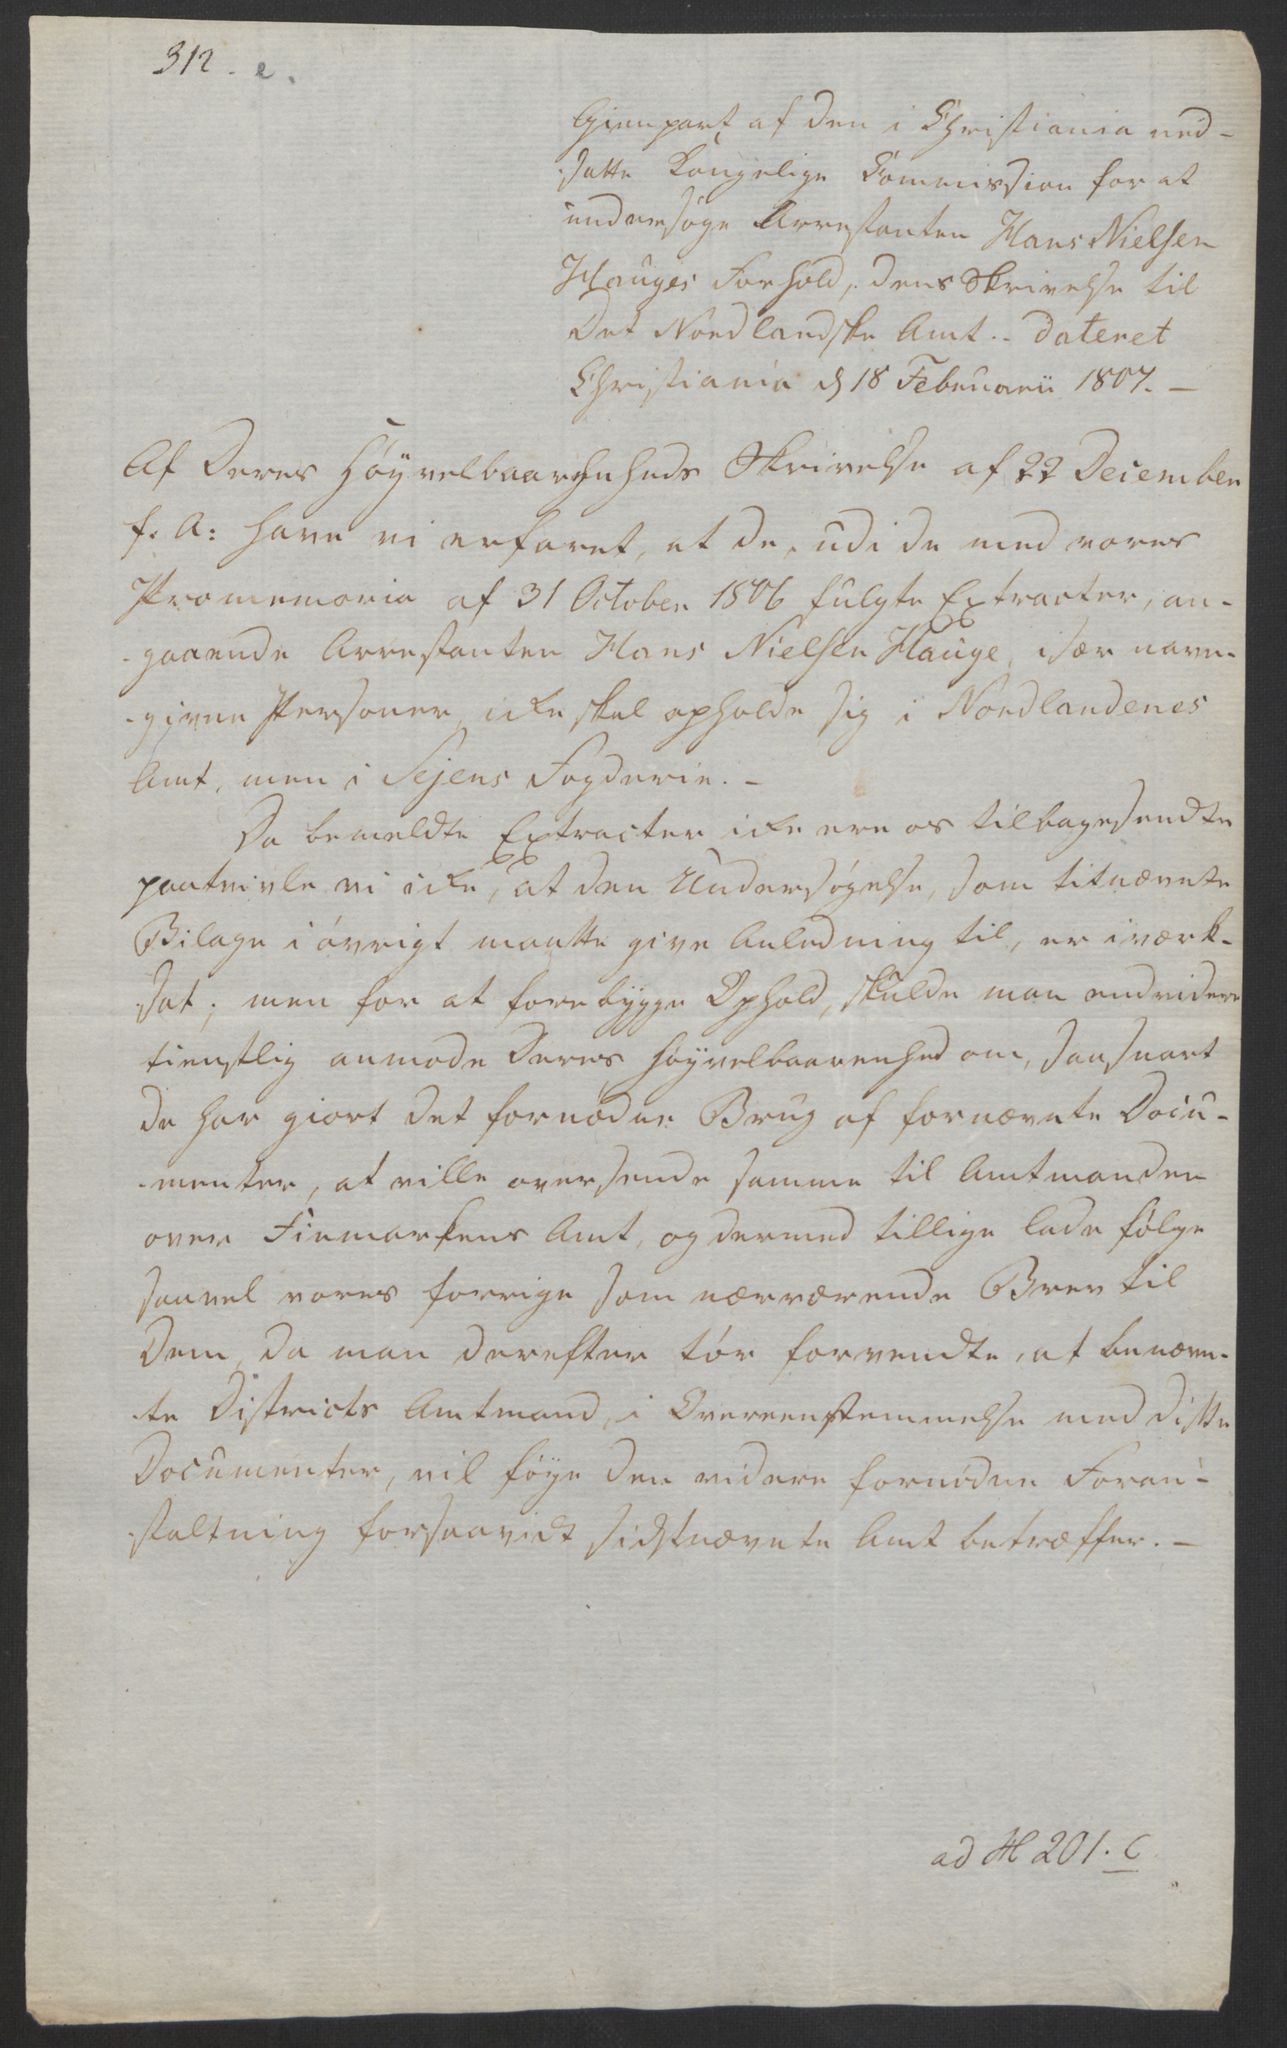 312. e.
Gienpart af den i Christiania ned-
satte Kongelige Commission for at
undersøge Arrestanten Hans Nielsen
Hauges Forhold, dens Skrivelse til
Det Nordlandske Amt.- dateret
Christiania d 18 Februarii 1807. -
Af Deres Høyvelbaarenheds Skrivelse af 22 December
f. A: have vi erfaret, at de, udi de med vores
Promemoria af 31 October 1806 fulgte Extracter, an-
-gaaende Arrestanten Hans Nielsen Hauge, især navn-
-givne Personer, icke skal opholde sig i Nordlandenes
Amt, men i Sejens Fogderie. -
Da bemeldte Extracter icke ere os tilbagesendte
paatvivle vi icke, at den Undersøgelse, som titnævnte
Bilage i øvrigt maatte give Anledning til, er iværk-
sat; men for at forebygge Ophold, skulde man endvidere
tienstlig anmode Deres Høyvelbaarenhed om, saasnart
de har giort det fornødne Brug af fornævnte Docu-
-menter, at ville oversende samme til Amtmanden
over Finmarkens Amt, og dermed tillige lade følge
saavel vores forrige som nærværende Brev til
Dem, da man derefter tør forvendte, at benævn-
-te Districts Amtmand, i Overeenstemmelse med disse
Documenter, vil føye den videre fornødne Foran-
-staltning forsaavidt sidstnævnte Amt betræffer. -
ad № 201. c